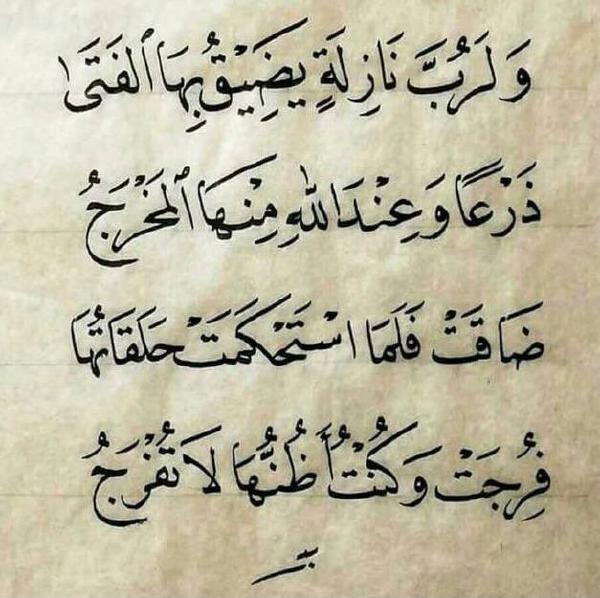 وَلَرُبَّ نَازِلَةٍ يَضِيْقُ بِهَا ٱلفَتَىٰ
ذَرْعًا وَعِنْدَ اللهِ مِنْهَا ٱلمَخْرَجُ
ضَاقَتْ فَلَمَا اسْتَحْكَمَتْ حَلَقَاتُهَا
فُرِجَتْ وَكُنْتُ أَظُنُّهَا لَا تُفْرَجُ